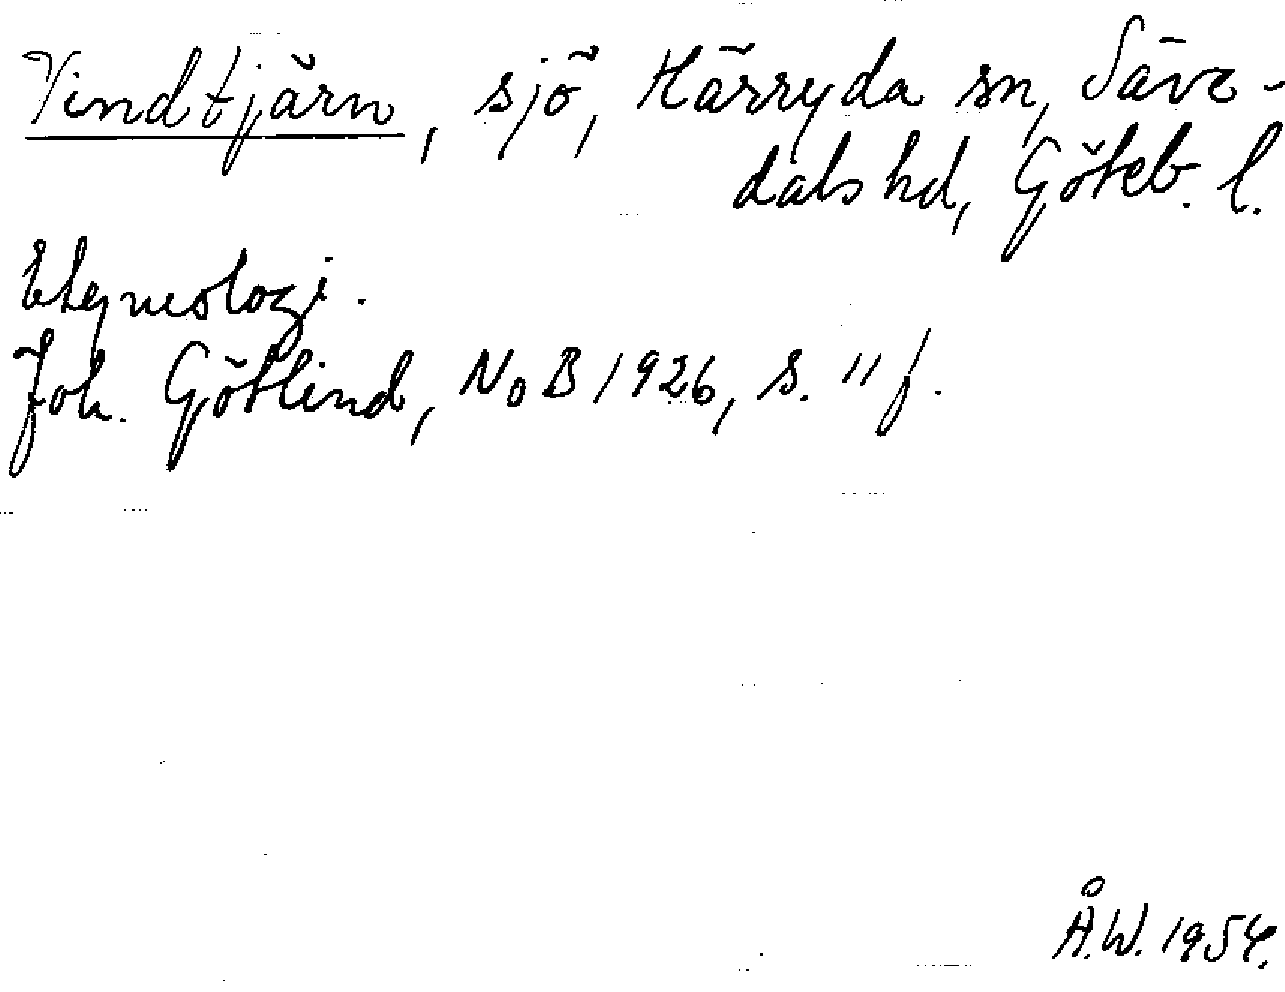 Vindtjärn, sjö, Härryda sn, Säve-
dals hd, Göteb. l.
Etymologi.
Joh. Götlind, NoB 1926, s. 11 f.
Å.W. 1954.